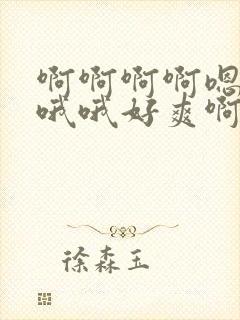 啊啊啊啊嗯
哦哦好爽啊
徐森玉